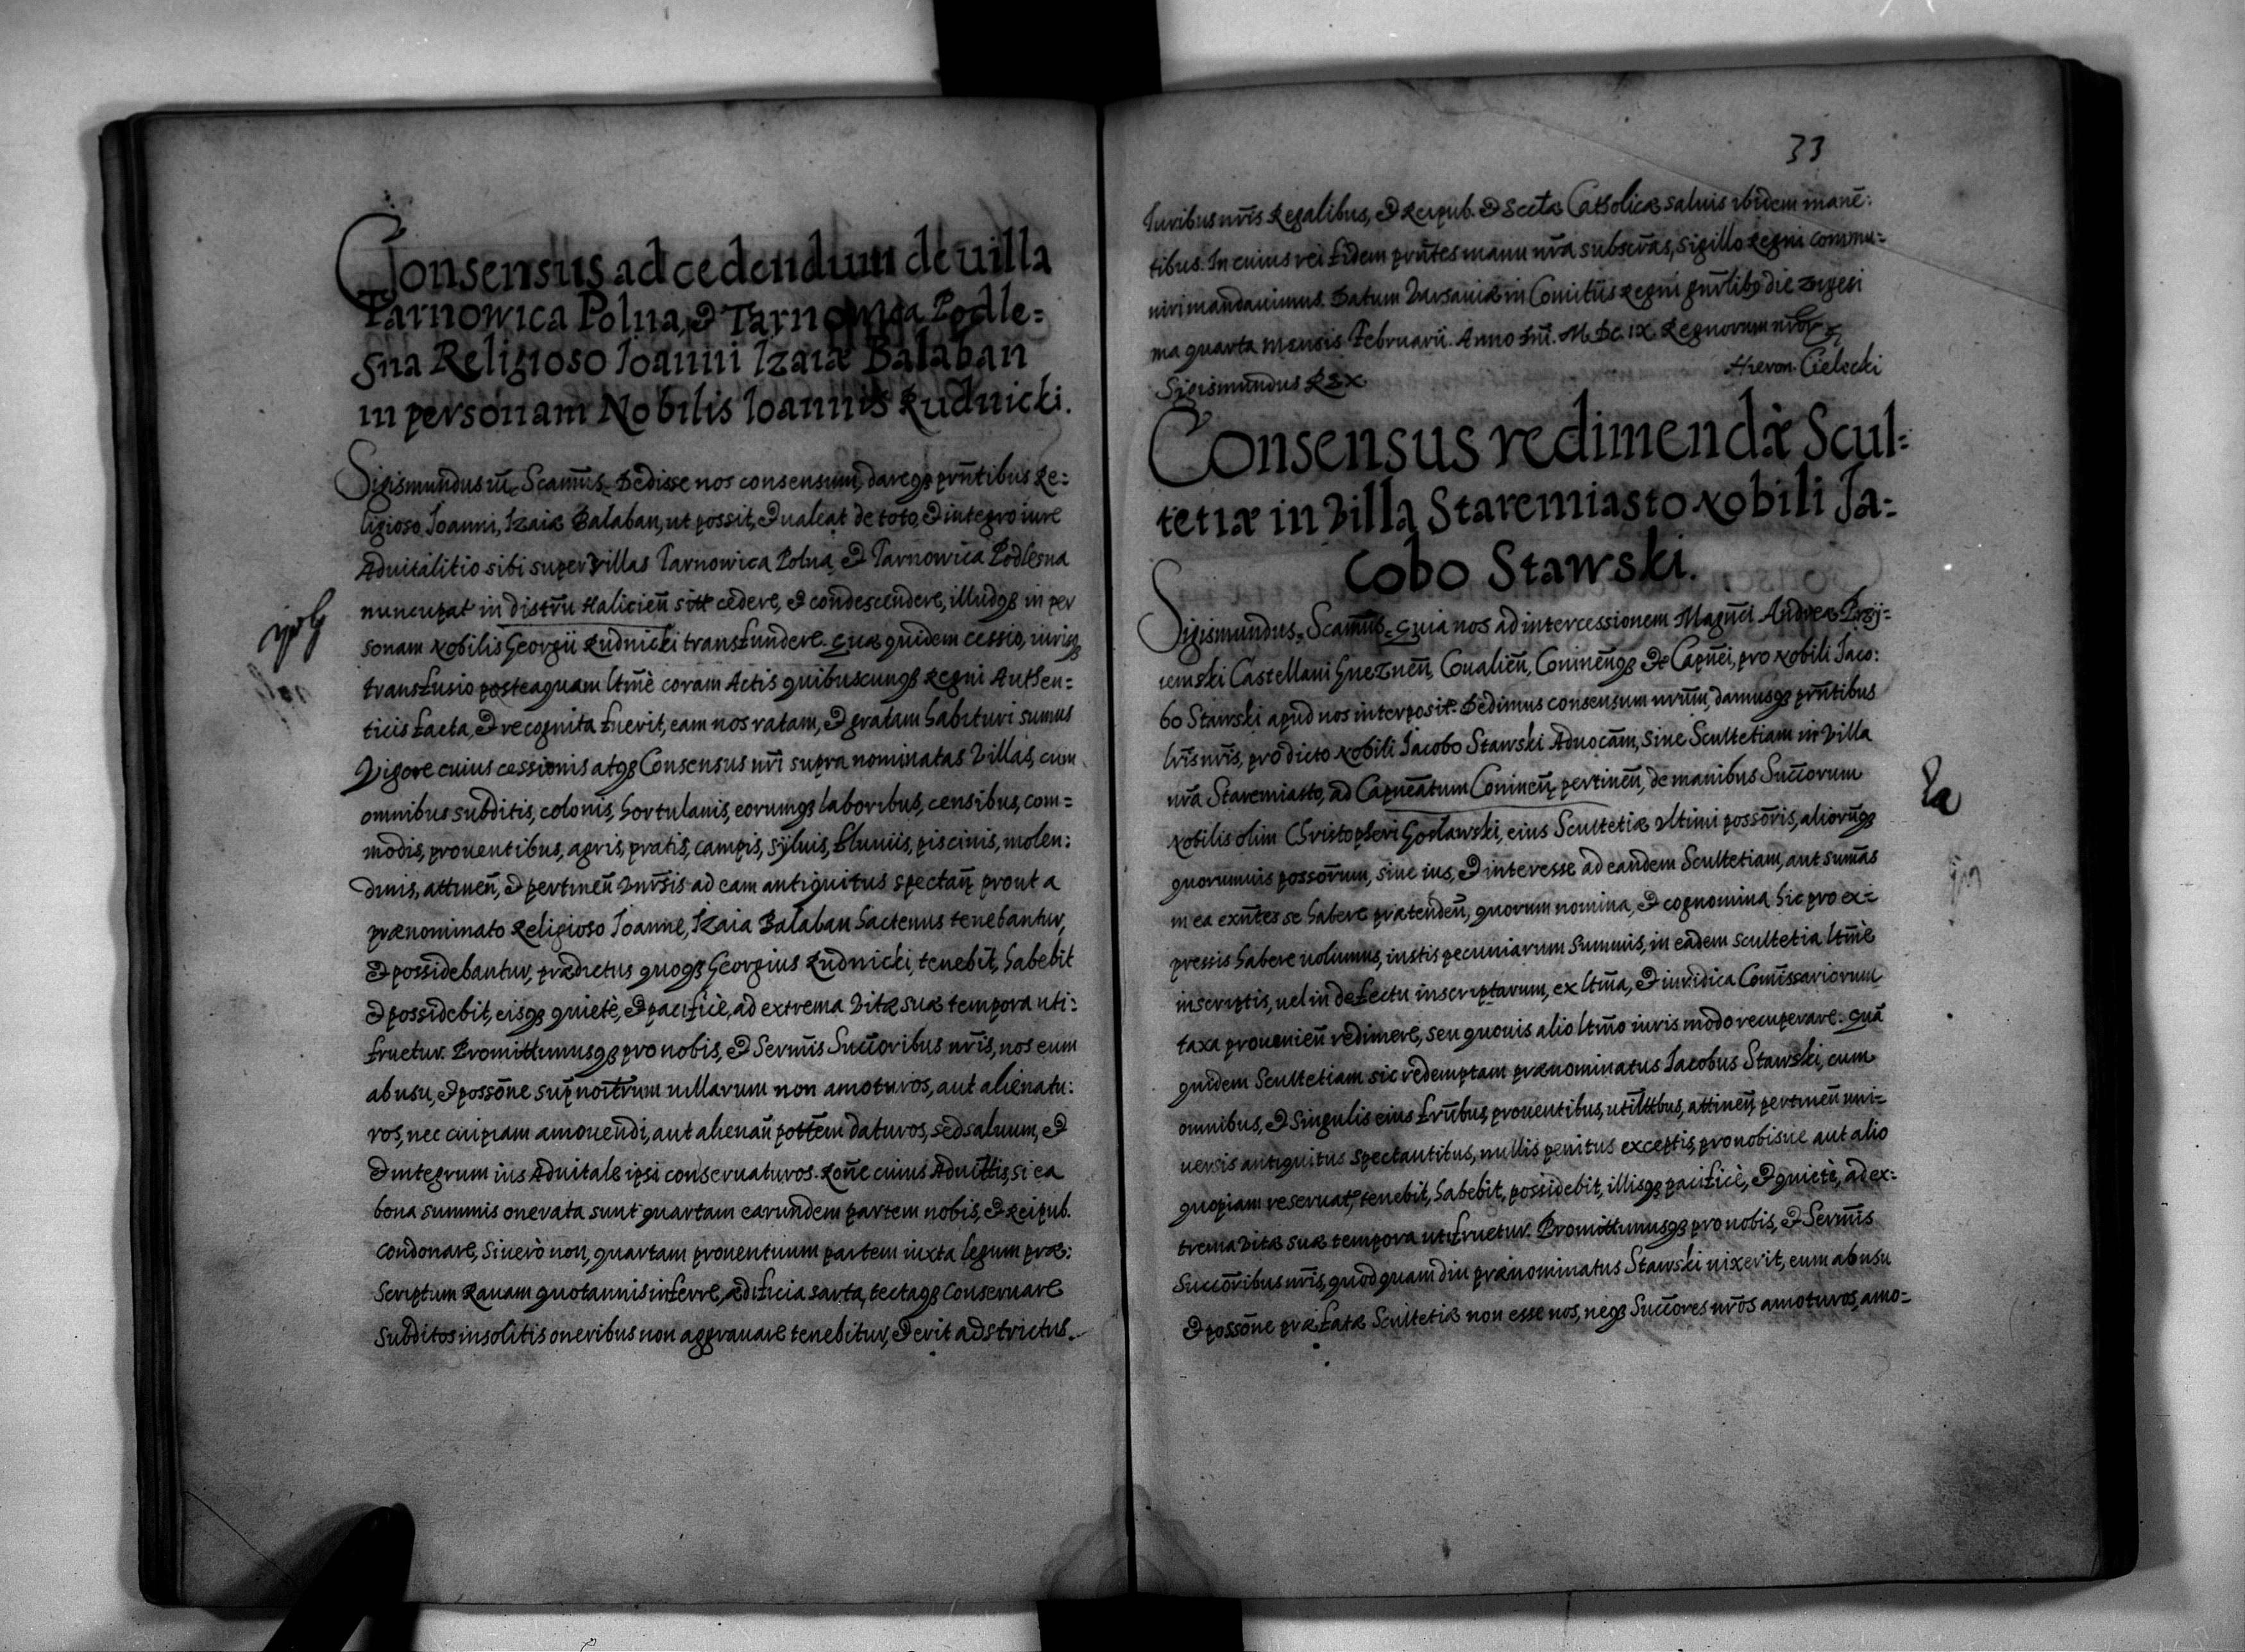 Consensus ad cedendum de uilla
Tarnowica Polna, & Tarnowica Podle=
sna Religioso Ioanni Izaiæ Balaban
in personam Nobilis Ioannis Rudnicki.
Sigismundus III. Scam̃us. Dedisse nos consensum, dareqȝ pñtibus Re=
ligioso Ioanni, Izaiæ Balaban, ut possit, & ualeat de toto, & integro iure
Aduitalitio sibi super villas Tarnowica Polna & Tarnowica Podlesna
nuncupat in distr̃u Halicieñ sitt cedere, & condescendere, illudqȝ in per
sonam Nobilis Georgii Rudnicki transfundere. Quæ quidem cessio, iurisqȝ
transfusio posteaquam ltm̃è coram Actis quibuscunqȝ Regni Authen=
ticis facta, & recognita fuerit, eam nos ratam, & gratam habituri sumus
Vigore cuius cessionis atqȝ Consensus nr̃i supra nominatas Villas, cum
omnibus subditis, colonis, hortulanis, eorumqȝ laboribus, censibus, com=
modis, prouentibus, agris, pratis, campis, syluis, fluuiis, piscinis, molen:
dinis, attineñ, & pertineñ vnr̃sis ad eam antiquitus spectañ prout a
prænominato Religioso Ioanne, Izaia Balaban hactenus tenebantur,
& possidebantur, prædictus quoqȝ Georgius Rudnicki, tenebit, habebit
& possidebit, eisqȝ quietè, & pacificè, ad extrema vitæ suæ tempora uti:
fruetur. Promittimusqȝ pro nobis, & Serm̃is Succ̃oribus nr̃is, nos eum
ab usu, & possõne sup̃noĩtrum uillarum non amoturos, aut alienatu:
ros, nec cuipiam amouendi, aut alienañ pottẽm daturos, sed saluum, &
& integrum ius Aduitale ipsi conseruaturos. Rõne cuius Aduittis, si ea
bona summis onerata sunt quartam earundem partem nobis, & Reipub.
condonare, si uerò non, quartam prouentuum partem iuxta legum præ:
scriptum Rauam quotannis inferre, ædificia sarta, tectaqȝ conseruare
Subditos insolitis oneribus non aggrauare tenebitur, & erit adstrictus.
33
Iuribus nr̃is Regalibus, & Reipub. & Scctæ Catholicæ saluis ibidem manẽ:
tibus. In cuius rei fidem pñtes manu nr̃a subscr̃as, sigillo Regni commu=
niri mandauimus. Datum Varsauiæ in Comitiis Regni gnr̃libȝ die vigesi
ma quarta mensis Februarii. Anno Dni. M. DC. IX Regnorum nr̃or
Sigismundus Rex. Hieron. Cielecki
Consensus redimendæ Scul=
tetiæ in Villa Staremiasto Nobili Ja=
cobo Stawski.
Sigismundus. Scam̃us. Quia nos ad intercessionem Magñci Andreæ Przy=
iemski Castellani Gnezneñ, Coualieñ, Coninenqȝ & Capñei, pro Nobili Iaco:
bo Stawski apud nos interposit. Dedimus consensum nrum̃, damusqȝ pñtibus
lr̃is nr̃is, prodicto Nobili Iacobo Stawski Aduocãm, siue Scultetiam in Villa
nr̃a Staremiasto, ad Capneãtum Conineñ pertineñ, de manibus Succ̃orum
Nobilis olim Christopheri Goslawski, eius Scultetiæ vltimi possõris, aliorũqȝ
quorumuis possõrum, siue ius, & interesse ad eandem Scultetiam, aut sum̃as
in ea exñtes se habere prætendeñ, quorum nomina, & cognomina hic pro ex=
pressis habere uolumus, iustis pecuniarum summis, in eadem scultetia ltm̃è
inscriptis, uel in defectu inscriptarum, ex ltm̃a, & iuridica Comissariorum
taxa prouenieñ redimere, seu quouis alio ltm̃o iuris modo recuperare. Quã
quidem Scultetiam sic redemptam prænominatus Iacobus Stawski, cum
omnibus, & singulis eius frũbus, prouentibus, utilttbus, attineñ, pertineñ uni=
uersis antiquitus spectantibus, nullis penitus exceptis, pro nobisue aut alio
quopiam reseruat, tenebit, habebit, possidebit, illisqȝ pacificè, & quietè, ad ex:
trema vitæ suæ tempora utifruetur. Promittimusqȝ pro nobis, & Serm̃is
Succõribus nr̃is, quod quam diu prænominatus Stawski uixerit, eum ab usu
& possõne præfatæ Scultetiæ non esse nos, neqȝ Succõres nr̃os amoturos, amo=